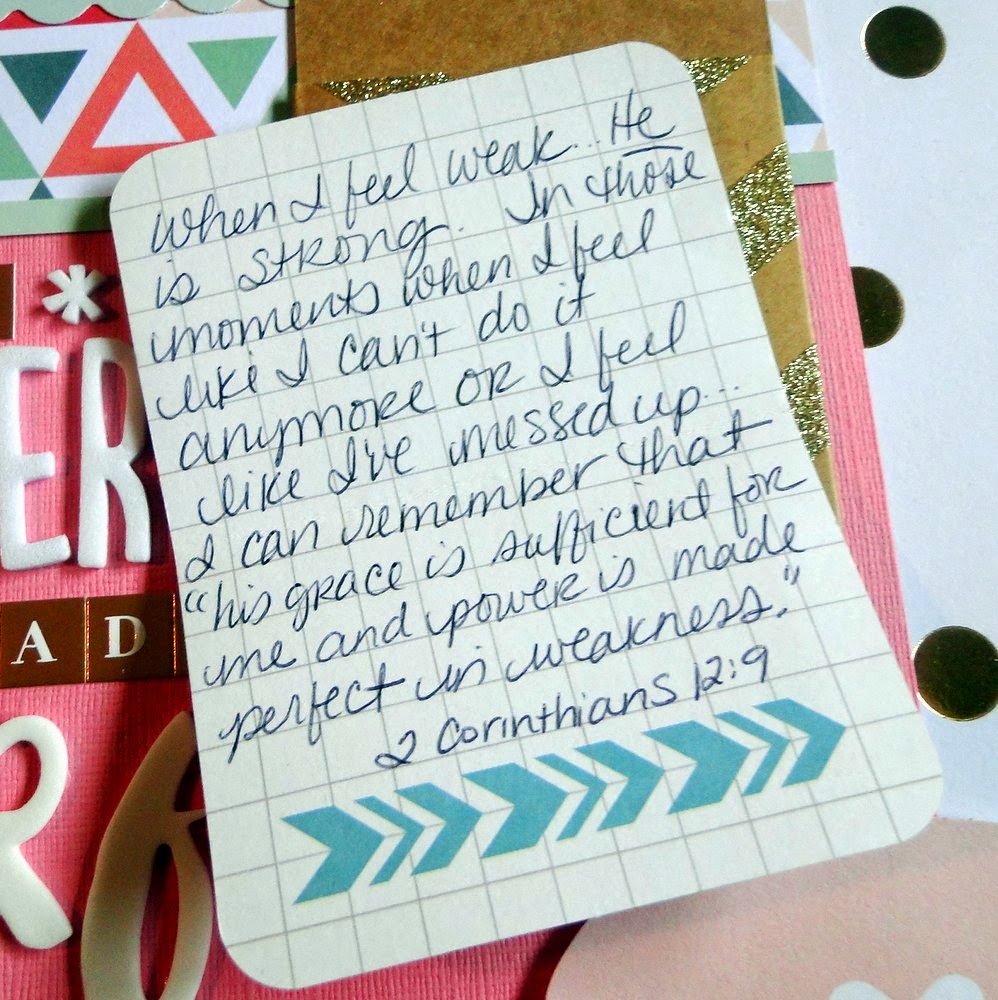 when I feel weak... He
is strong. In those
moments when I feel
like I can't do it
anymore or I feel
like I've messed up...
I can remember that
"his grace is sufficient for
me and power is made
perfect in weakness."
2 Corinthians 12:9
*
ER
AD